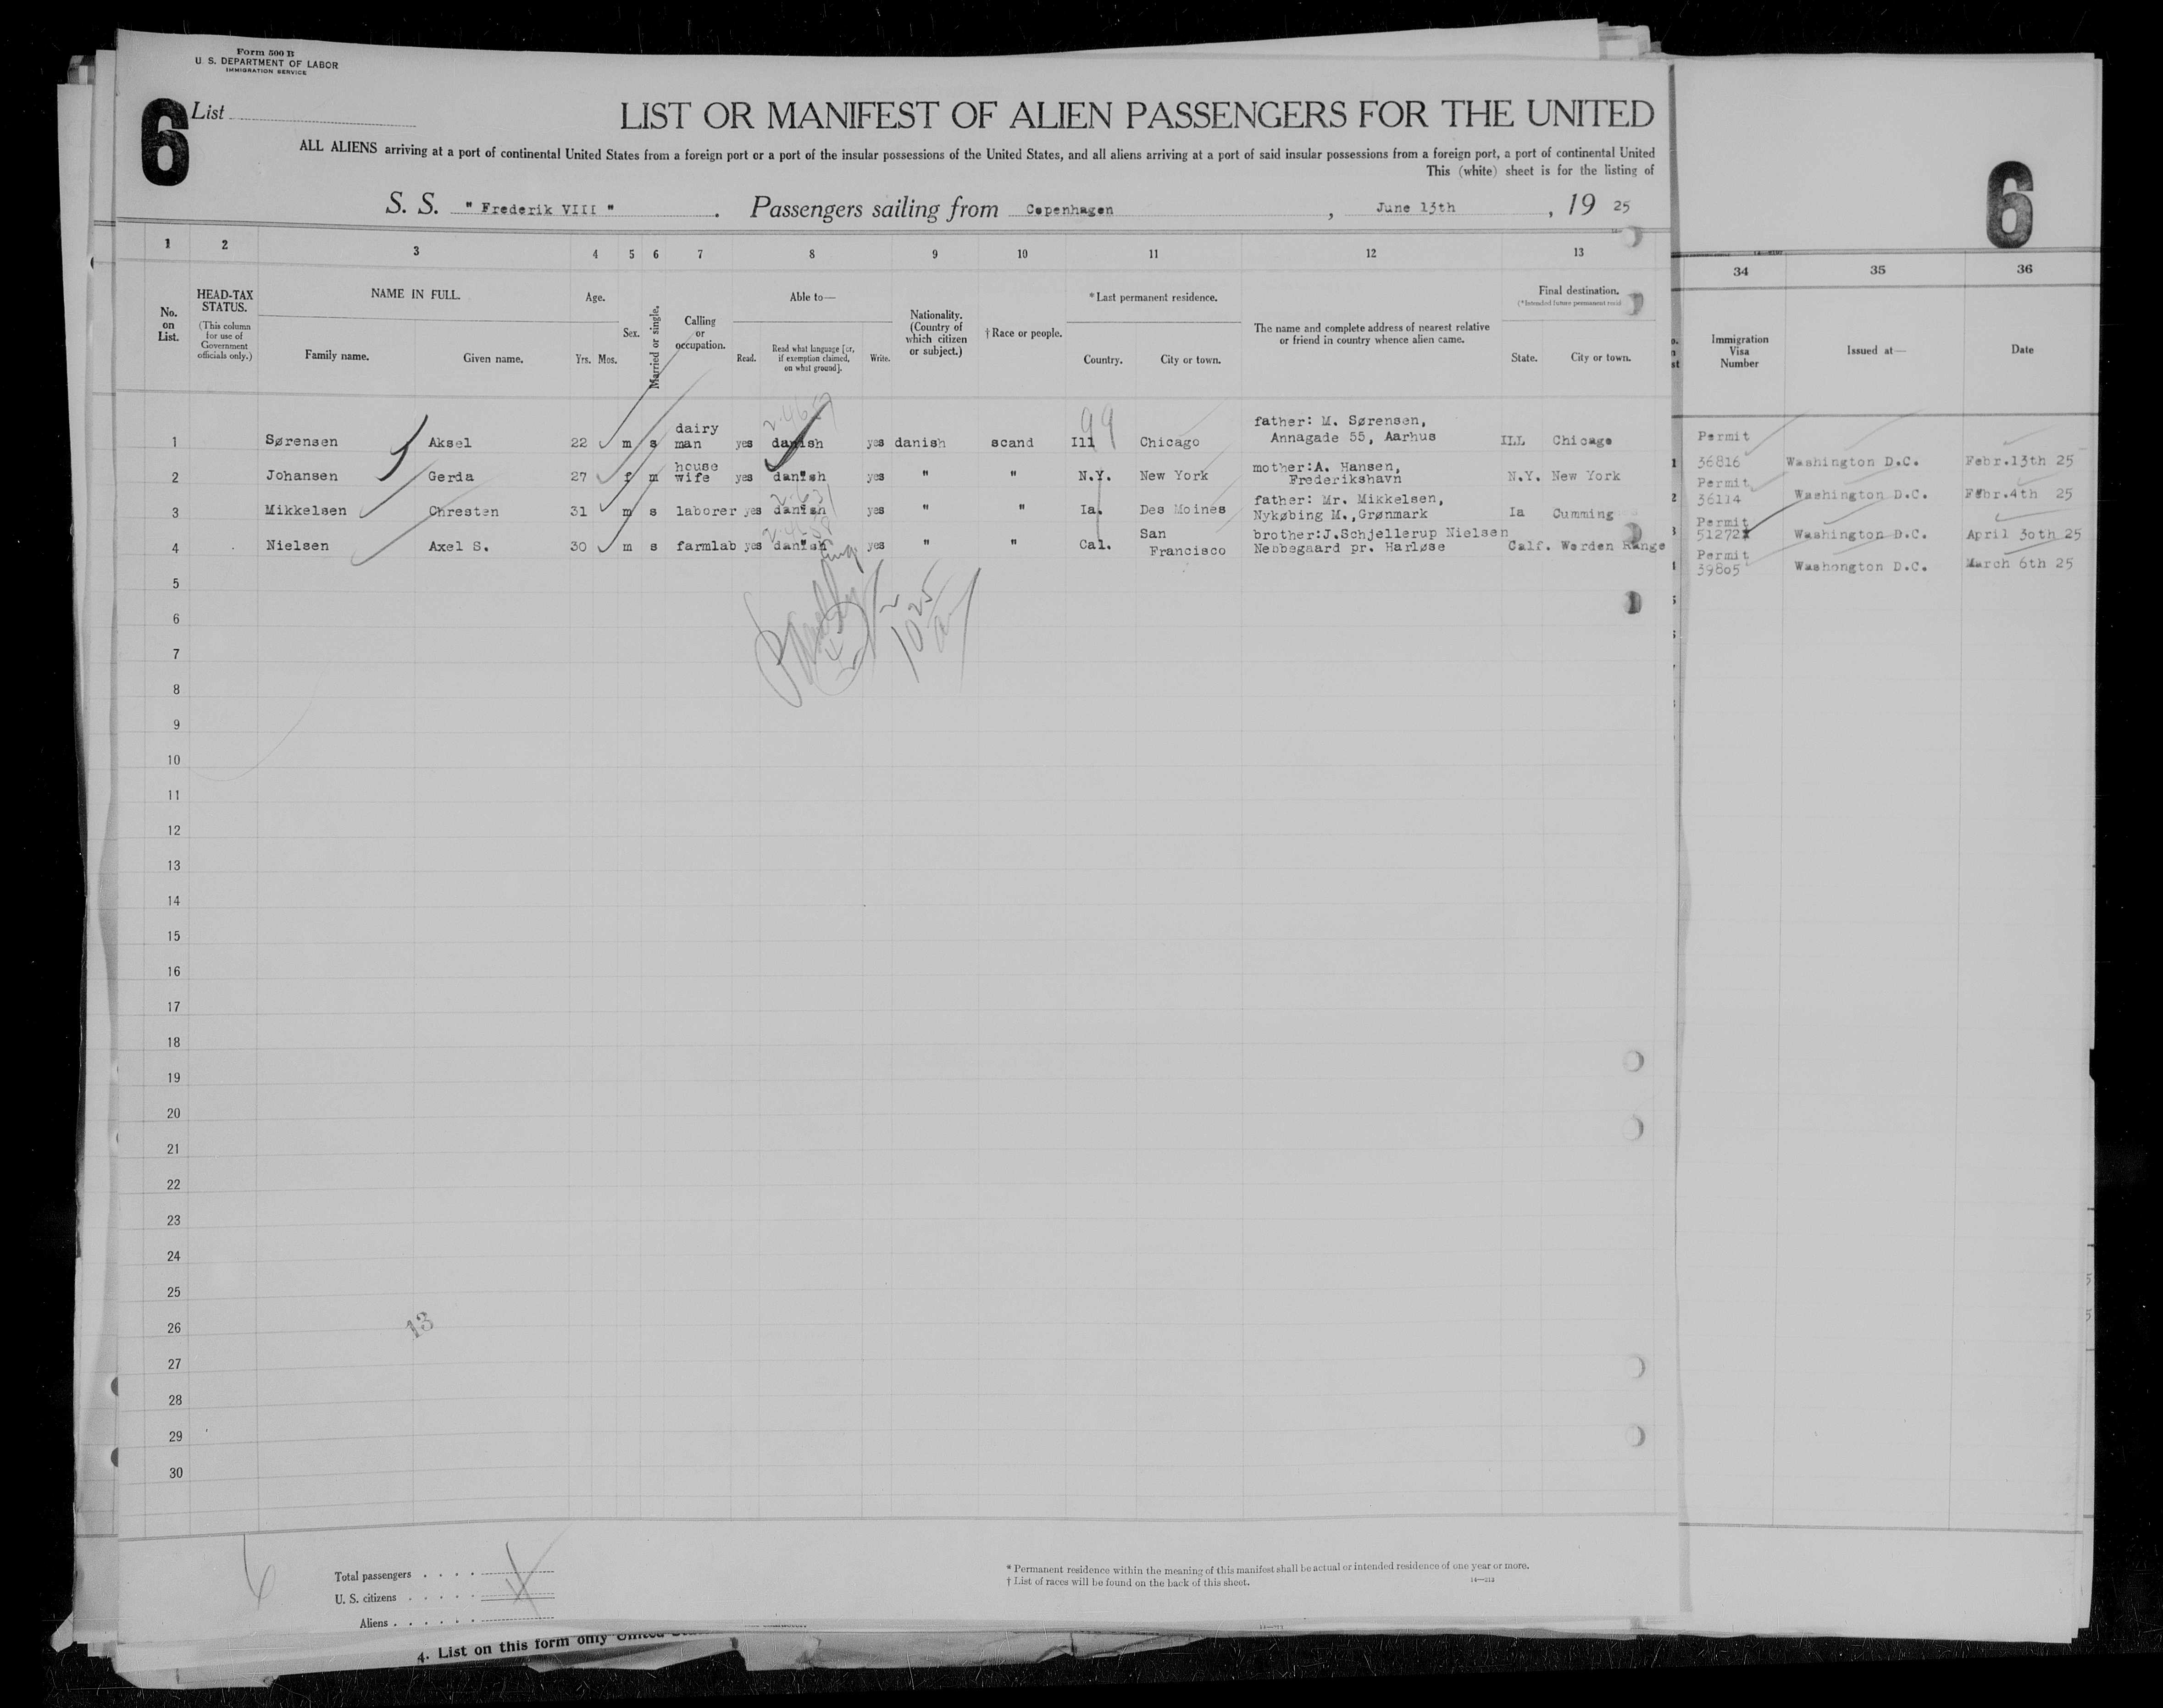 Form 500 B
U. S. DEPARTMENT OF LABOR
IMMIGRATION SERVICE
6
List
LIST OR MANIFEST OF ALIEN PASSENGERS FOR THE UNITED
ALL ALIENS arriving at a port of continental United States from a foreign port or a port of the insular possessions of the United States, and all aliens arriving at a port of said insular possessions from a foreign port, a port of continental United
This (white) sheet is for the listing of
S. S. " Frederik VIII " . Passengers sailing from Copenhagen , June 13th , 19 25
6
1 2 3 4 5 6 7 8 9 10 11 12 13 34 35 36
No. on List.
HEAD-TAX STATUS.
(This column for use of Government officials only.)
NAME IN FULL.
Family name. Given name.
Age.
Yrs. Mos.
Sex.
Married or single.
Calling or occupation.
Able to—
Read. Read what language [or, if exemption claimed, on what ground]. Write.
Nationality. (Country of which citizen or subject.)
† Race or people.
* Last permanent residence.
Country. City or town.
The name and complete address of nearest relative or friend in country whence alien came.
Final destination.
(*Intended future permanent resid
State. City or town.
Immigration Visa Number
Issued at—
Date
1 Sørensen Aksel 22 m s dairy man yes danish yes danish scand Ill Chicago father: M. Sørensen, Annagade 55, Aarhus ILL Chicago
99
2 Johansen Gerda 27 f m house wife yes danish yes " " N.Y. New York mother:A. Hansen, Frederikshavn N.Y. New York
3 Mikkelsen Chresten 31 m s laborer yes danish yes " " Ia. Des Moines father: Mr. Mikkelsen, Nykøbing M.,Grønmark Ia Cumming
4 Nielsen Axel S. 30 m s farmlab yes danish yes " " Cal. San Francisco brother:J.Schjellerup Nielsen Nebbegaard pr. Harløse Calf. Werden Range
1 Permit 36816 Washington D.C. Febr.13th 25
2 Permit 36114 Washington D.C. Febr.4th 25
3 Permit 51272 Washington D.C. April 30th 25
Permit 39805 Washongton D.C. March 6th 25
5
6
7
8
9
10
11
12
13
14
15
16
17
18
19
20
21
22
23
24
25
26
27
28
29
30
13
6
Total passengers . . . .
U. S. citizens . . . . .
Aliens . . . . . .
* Permanent residence within the meaning of this manifest shall be actual or intended residence of one year or more.
† List of races will be found on the back of this sheet.
14—213
4. List on this form only